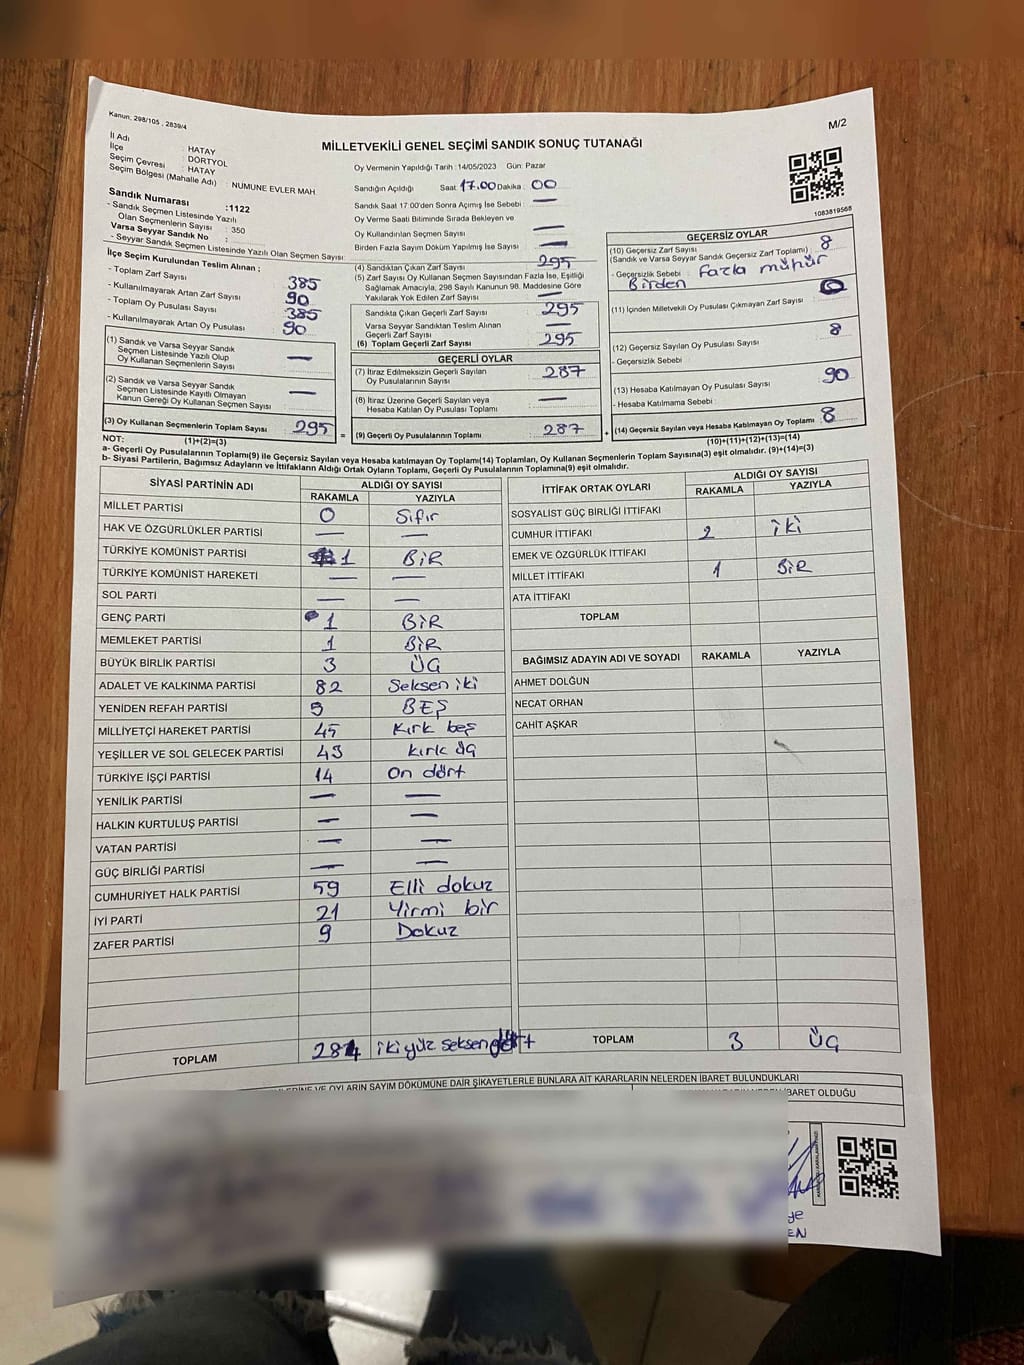 Kanun, 298/105 , 2839/4
M/2
MİLLETVEKİLİ GENEL SEÇİMİ SANDIK SONUÇ TUTANAĞI
İl Adı : HATAY
İlçe : DÖRTYOL
Seçim Çevresi : HATAY
Seçim Bölgesi (Mahalle Adı) : NUMUNE EVLER MAH
Sandık Numarası :1122
- Sandık Seçmen Listesinde Yazılı
Olan Seçmenlerin Sayısı : 350
Varsa Seyyar Sandık No :
- Seyyar Sandık Seçmen Listesinde Yazılı Olan Seçmen Sayısı:
Oy Vermenin Yapıldığı Tarih :14/05/2023 Gün: Pazar
Sandığın Açıldığı Saat 17.00 Dakika : 00
Sandık Saat 17:00'den Sonra Açımış İse Sebebi : —
Oy Verme Saati Bitiminde Sırada Bekleyen ve
Oy Kullandırılan Seçmen Sayısı —
Birden Fazla Sayım Döküm Yapılmış İse Sayısı —
1083819568
İlçe Seçim Kurulundan Teslim Alınan :
- Toplam Zarf Sayısı 385
- Kullanılmayarak Artan Zarf Sayısı 90
- Toplam Oy Pusulası Sayısı 385
- Kullanılmayarak Artan Oy Pusulası 90
(1) Sandık ve Varsa Seyyar Sandık
Seçmen Listesinde Yazılı Olup
Oy Kullanan Seçmenlerin Sayısı —
(2) Sandık ve Varsa Seyyar Sandık
Seçmen Listesinde Kayıtlı Olmayan
Kanun Gereği Oy Kullanan Seçmen Sayısı —
(3) Oy Kullanan Seçmenlerin Toplam Sayısı 295 =
(4) Sandıktan Çıkan Zarf Sayısı 295
(5) Zarf Sayısı Oy Kullanan Seçmen Sayısından Fazla İse, Eşitliği
Sağlamak Amacıyla, 298 Sayılı Kanunun 98. Maddesine Göre
Yakılarak Yok Edilen Zarf Sayısı —
Sandıkta Çıkan Geçerli Zarf Sayısı 295
Varsa Seyyar Sandıktan Teslim Alınan
Geçerli Zarf Sayısı —
(6) Toplam Geçerli Zarf Sayısı 295
GEÇERLİ OYLAR
(7) İtiraz Edilmeksizin Geçerli Sayılan
Oy Pusulalarının Sayısı 287
(8) İtiraz Üzerine Geçerli Sayılan veya
Hesaba Katılan Oy Pusulası Toplamı —
(9) Geçerli Oy Pusulalarının Toplamı 287 +
GEÇERSİZ OYLAR
(10) Geçersiz Zarf Sayısı
(Sandık ve Varsa Seyyar Sandık Geçersiz Zarf Toplamı) : 8
- Geçersizlik Sebebi : Fazla mühür
Birden
(11) İçinden Milletvekili Oy Pusulası Çıkmayan Zarf Sayısı 0
(12) Geçersiz Sayılan Oy Pusulası Sayısı 8
- Geçersizlik Sebebi :
(13) Hesaba Katılmayan Oy Pusulası Sayısı 90
- Hesaba Katılmama Sebebi :
(14) Geçersiz Sayılan veya Hesaba Katılmayan Oy Toplamı 8
NOT: (1)+(2)=(3)
(10)+(11)+(12)+(13)=(14)
a- Geçerli Oy Pusulalarının Toplamı(9) ile Geçersiz Sayılan veya Hesaba katılmayan Oy Toplamı(14) Toplamları, Oy Kullanan Seçmenlerin Toplam Sayısına(3) eşit olmalıdır. (9)+(14)=(3)
b- Siyasi Partilerin, Bağımsız Adayların ve İttifakların Aldığı Ortak Oyların Toplamı, Geçerli Oy Pusulalarının Toplamına(9) eşit olmalıdır.
SİYASİ PARTİNİN ADI ALDIĞI OY SAYISI
RAKAMLA YAZIYLA
MİLLET PARTİSİ 0 Sıfır
HAK VE ÖZGÜRLÜKLER PARTİSİ — —
TÜRKİYE KOMÜNİST PARTİSİ 1 BİR
TÜRKİYE KOMÜNİST HAREKETİ — —
SOL PARTİ — —
GENÇ PARTİ 1 BİR
MEMLEKET PARTİSİ 1 BİR
BÜYÜK BİRLİK PARTİSİ 3 ÜÇ
ADALET VE KALKINMA PARTİSİ 82 Seksen iki
YENİDEN REFAH PARTİSİ 5 BEŞ
MİLLİYETÇİ HAREKET PARTİSİ 45 Kırk beş
YEŞİLLER VE SOL GELECEK PARTİSİ 43 Kırk üç
TÜRKİYE İŞÇİ PARTİSİ 14 On dört
YENİLİK PARTİSİ — —
HALKIN KURTULUŞ PARTİSİ — —
VATAN PARTİSİ — —
GÜÇ BİRLİĞİ PARTİSİ — —
CUMHURİYET HALK PARTİSİ 59 Elli dokuz
İYİ PARTİ 21 Yirmi bir
ZAFER PARTİSİ 9 Dokuz
TOPLAM 284 iki yüz seksen dört
İTTİFAK ORTAK OYLARI ALDIĞI OY SAYISI
RAKAMLA YAZIYLA
SOSYALİST GÜÇ BİRLİĞİ İTTİFAKI
CUMHUR İTTİFAKI 2 iki
EMEK VE ÖZGÜRLÜK İTTİFAKI
MİLLET İTTİFAKI 1 BİR
ATA İTTİFAKI
TOPLAM
BAĞIMSIZ ADAYIN ADI VE SOYADI RAKAMLA YAZIYLA
AHMET DOLĞUN
NECAT ORHAN
CAHİT AŞKAR
TOPLAM 3 ÜÇ
VE OYLARIN SAYIM DÖKÜMÜNE DAİR ŞİKAYETLERLE BUNLARA AİT KARARLARIN NELERDEN İBARET BULUNDUKLARI
İBARET OLDUĞU